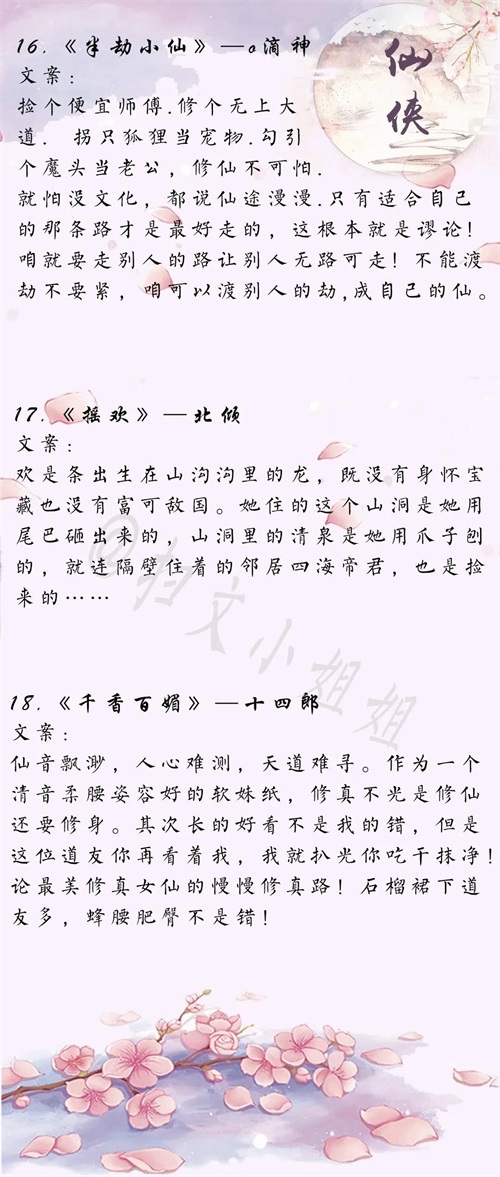 仙侠
16.《半劫小仙》—o滴神
文案：
捡个便宜师傅.修个无上大
道. 拐只狐狸当宠物.勾引
个魔头当老公，修仙不可怕.
就怕没文化，都说仙途漫漫.只有适合自己
的那条路才是最好走的，这根本就是谬论！
咱就要走别人的路让别人无路可走！不能渡
劫不要紧，咱可以渡别人的劫,成自己的仙。
17.《摇欢》—北倾
文案：
欢是条出生在山沟沟里的龙，既没有身怀宝
藏也没有富可敌国。她住的这个山洞是她用
尾巴砸出来的，山洞里的清泉是她用爪子刨
的，就连隔壁住着的邻居四海帝君，也是捡
来的……
@扫文小姐姐
18.《千香百媚》—十四郎
文案：
仙音飘渺，人心难测，天道难寻。作为一个
清音柔腰姿容好的软妹纸，修真不光是修仙
还要修身。其次长的好看不是我的错，但是
这位道友你再看着我，我就扒光你吃干抹净！
论最美修真女仙的慢慢修真路！石榴裙下道
友多，蜂腰肥臀不是错！